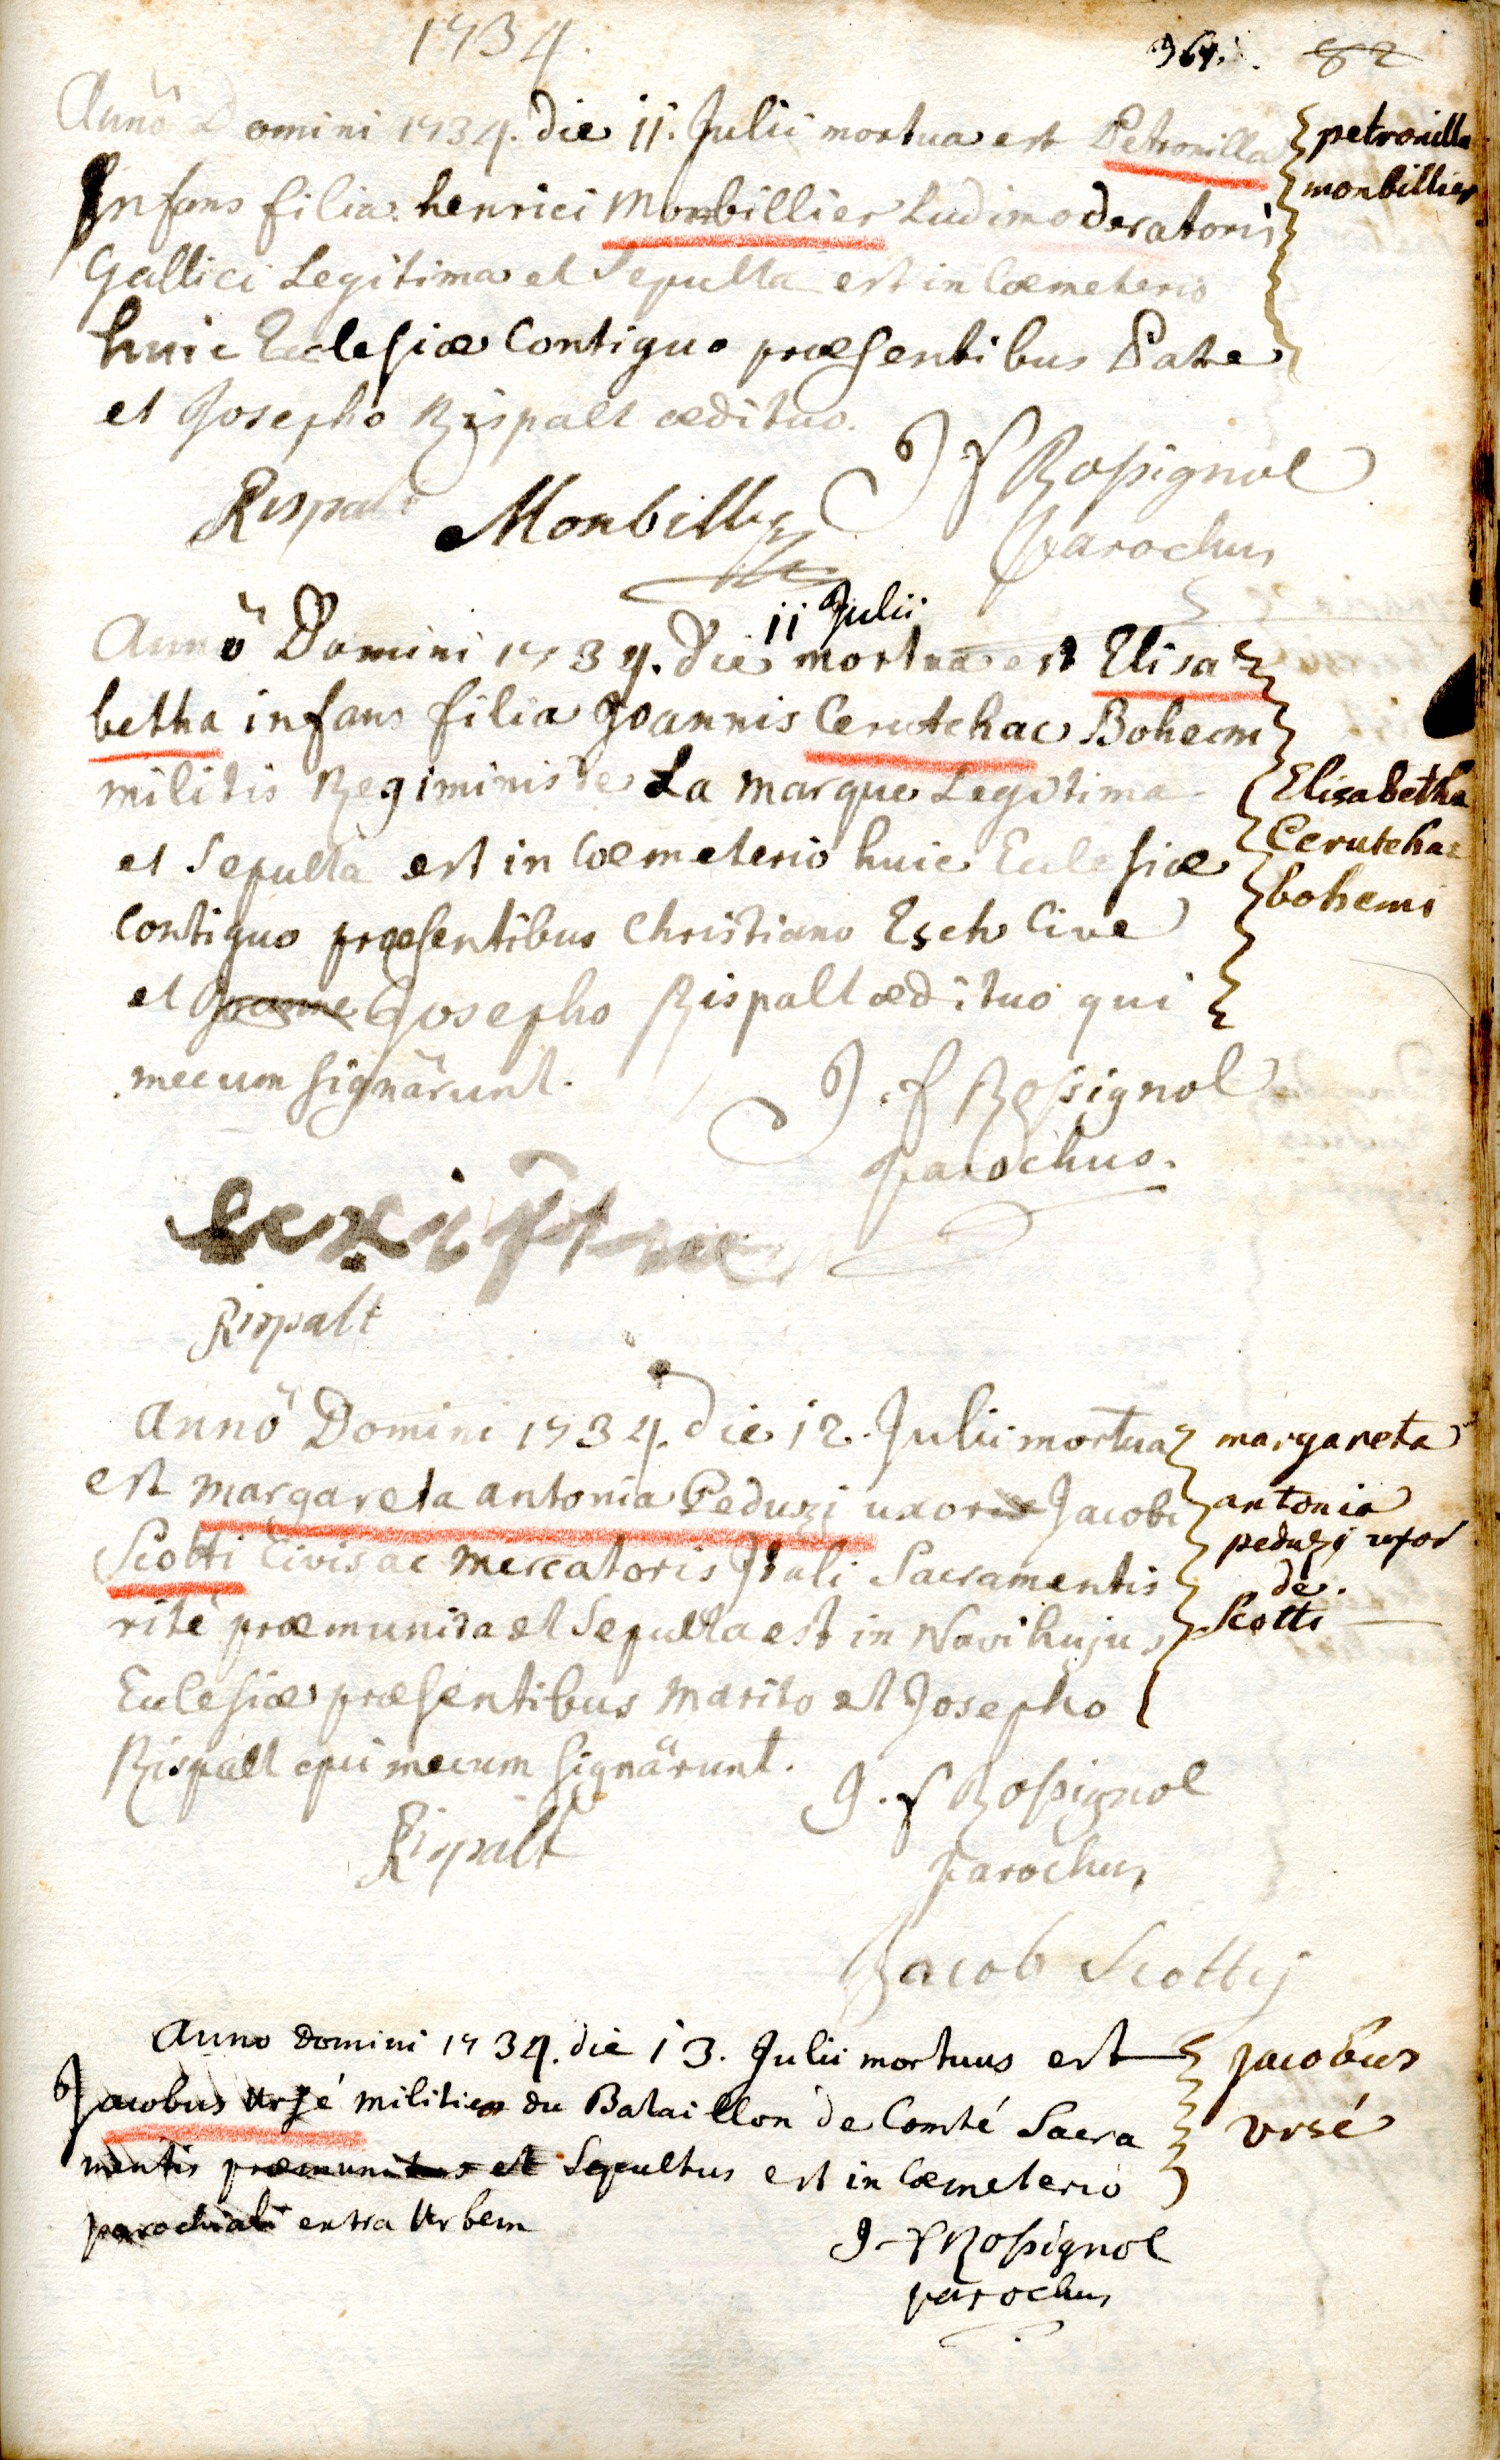 1734.
364. 82
Annô Domini 1734. die 11. Julii mortua est Petronilla
Infans filia henrici Monbillier Ludimoderatoris
Gallici Legitima et Sepulta est in Cœmeterio
huic Ecclesiæ Contiguo præsentibus Patre
et Josepho Rispalt ædituo.
petronilla
monbillier
J f Rossignol
Parochus
Rispalt Monbillier
11 Julii
Annô Domini 1734. die mortua est Elisa
betha infans filia Joannis Cerutchac Bohemi
militis Regiminis de La Marque Legitima
et Sepulta est in Cœmeterio huic Ecclesiæ
Contiguo præsentibus Christiano Esch Cive
et Josepho Rispalt ædituo qui
mecum signârunt.
Elisabetha
Cerutchac
bohemi
J. f Rossignol
parochus.
Rispalt
Annô Domini 1734. die 12. Julii mortua
est Margareta antonia Peduzi uxor Jacobi
Scotti Civis ac Mercatoris Itali Sacramentis
rite præmunita et Sepulta est in Navi hujus
Ecclesiæ præsentibus Marito et Josepho
Rispalt qui mecum signârunt.
margareta
antonia
peduzi uxor
de.
Scotti
J. f Rossignol
parochus
Rispalt
Jacob Scotty
Anno Domini 1734. die 13. Julii mortuus est
Jacobus Ursé du Bataillon de Comté Sacra
mentis præmunitus et Sepultus est in Cœmeterio
parochiali extra Urbem
Jacobus
Ursé
J f Rossignol
parochus